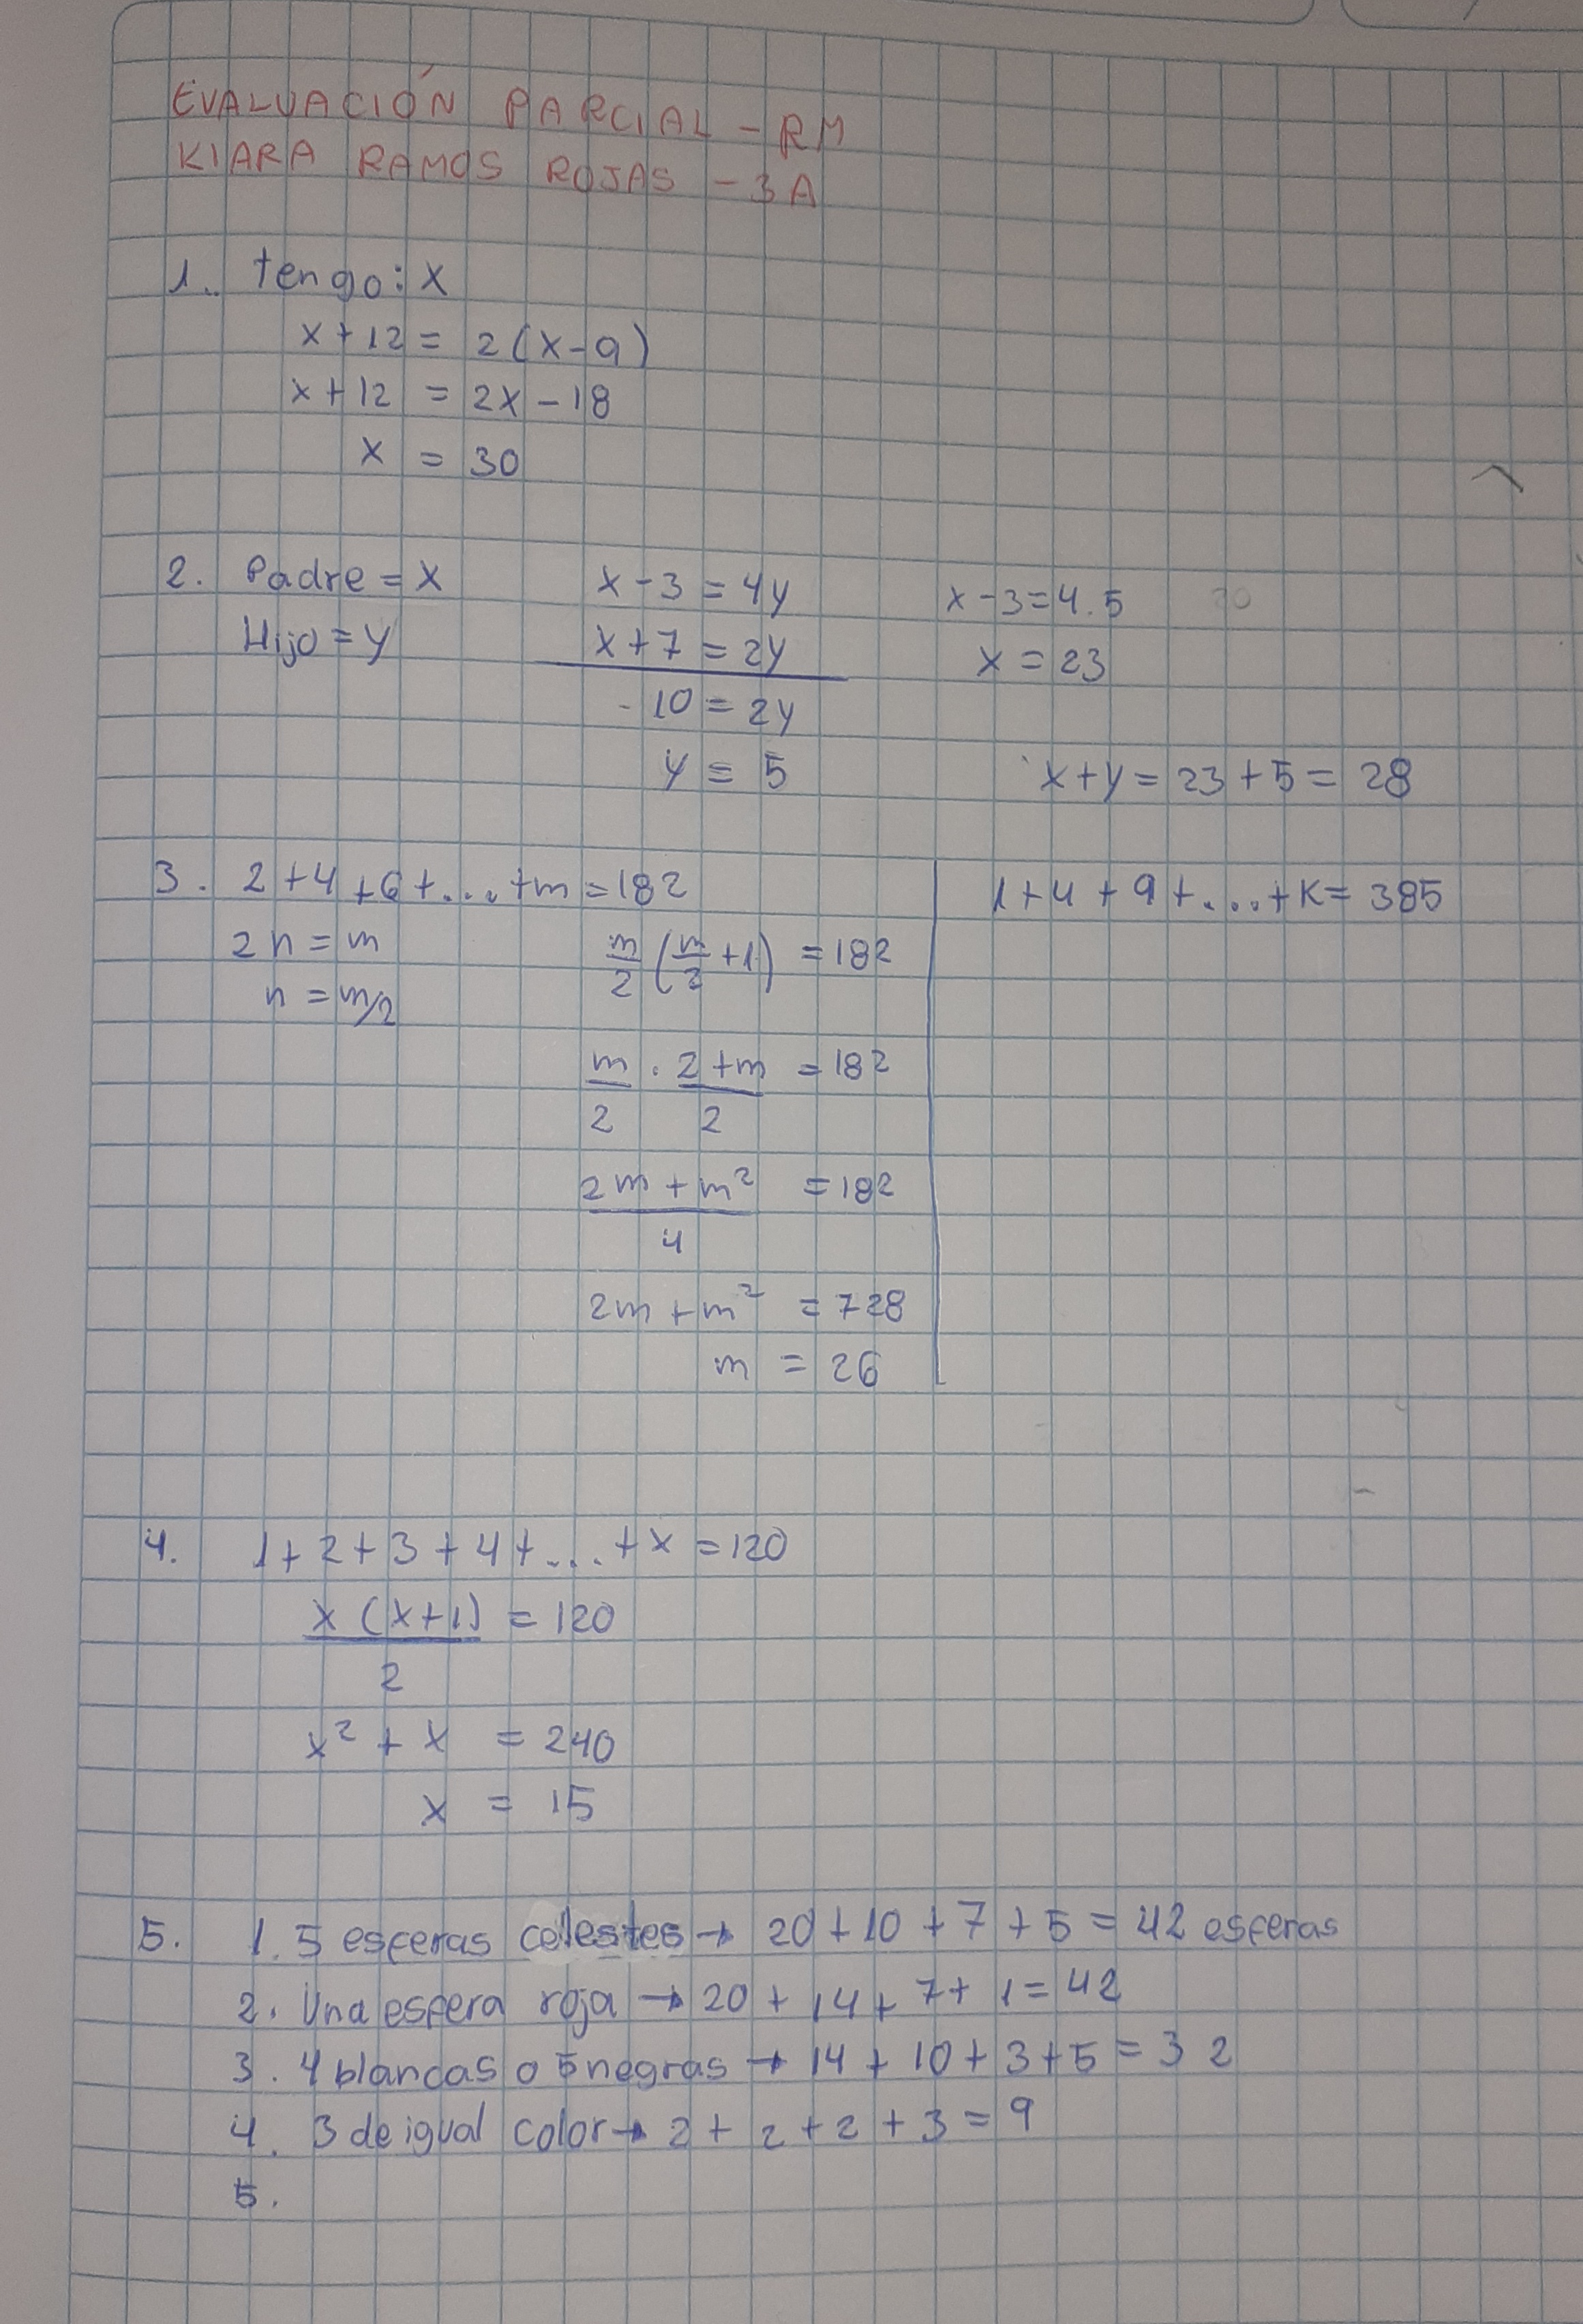 EVALUACIÓN PARCIAL - RM
KIARA RAMOS ROJAS - 3A
1.. tengo: x
x+12 = 2(x-9)
x+12 = 2x-18
x = 30
2. Padre = x
Hijo = y
x-3 = 4y
x+7 = 2y
-10 = 2y
y = 5
x-3=4.5
x = 23
x+y = 23+5 = 28
3. 2+4+6+....+m=182
2n = m
n = m/2
m/2 (m/2 +1) = 182
m/2 . 2+m/2 = 182
2m+m²/4 = 182
2m+m² = 728
m = 26
1+4+9+....+K= 385
4. 1+2+3+4+....+x =120
x(x+1)/2 = 120
x²+x = 240
x = 15
5. 1. 5 esferas celestes → 20+10+7+5 = 42 esferas
2. Una esfera roja → 20+14+7+1=42
3. 4 blancas o 5 negras → 14+10+3+5=32
4. 3 de igual color → 2+2+2+3=9
5.